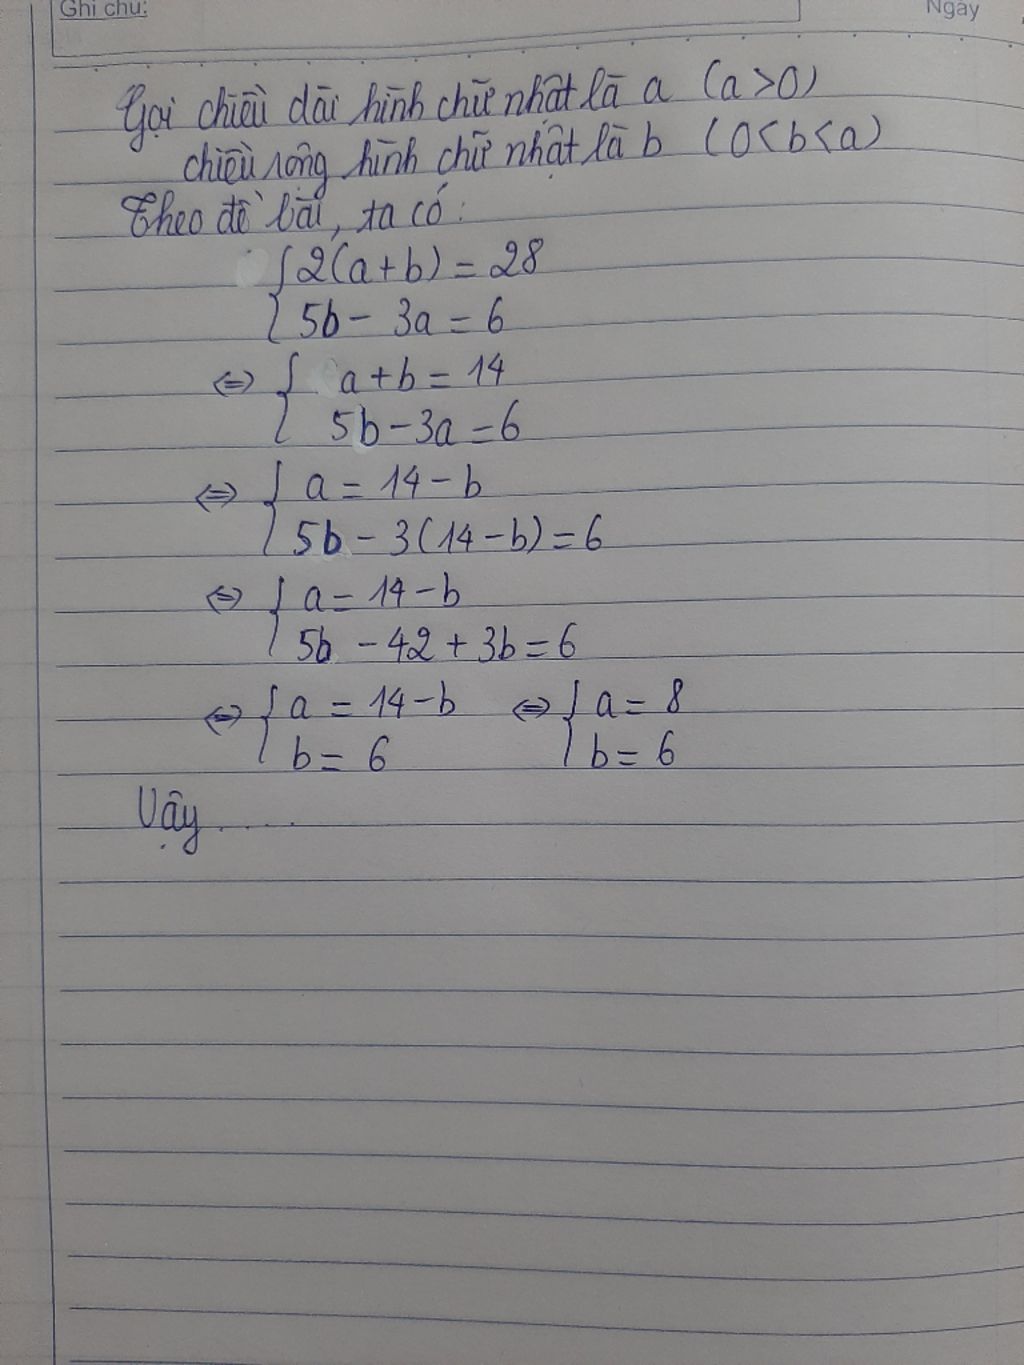 Ghi chú:
Ngày
Gọi chiều dài hình chữ nhật là a (a>0)
chiều rộng hình chữ nhật là b (0<b<a)
Theo đề bài, ta có:
{ 2(a+b) = 28
5b - 3a = 6
⇔ { a+b = 14
5b - 3a = 6
⇔ { a = 14 - b
5b - 3(14 - b) = 6
⇔ { a = 14 - b
5b - 42 + 3b = 6
⇔ { a = 14 - b ⇔ { a = 8
b = 6 b = 6
Vậy .....